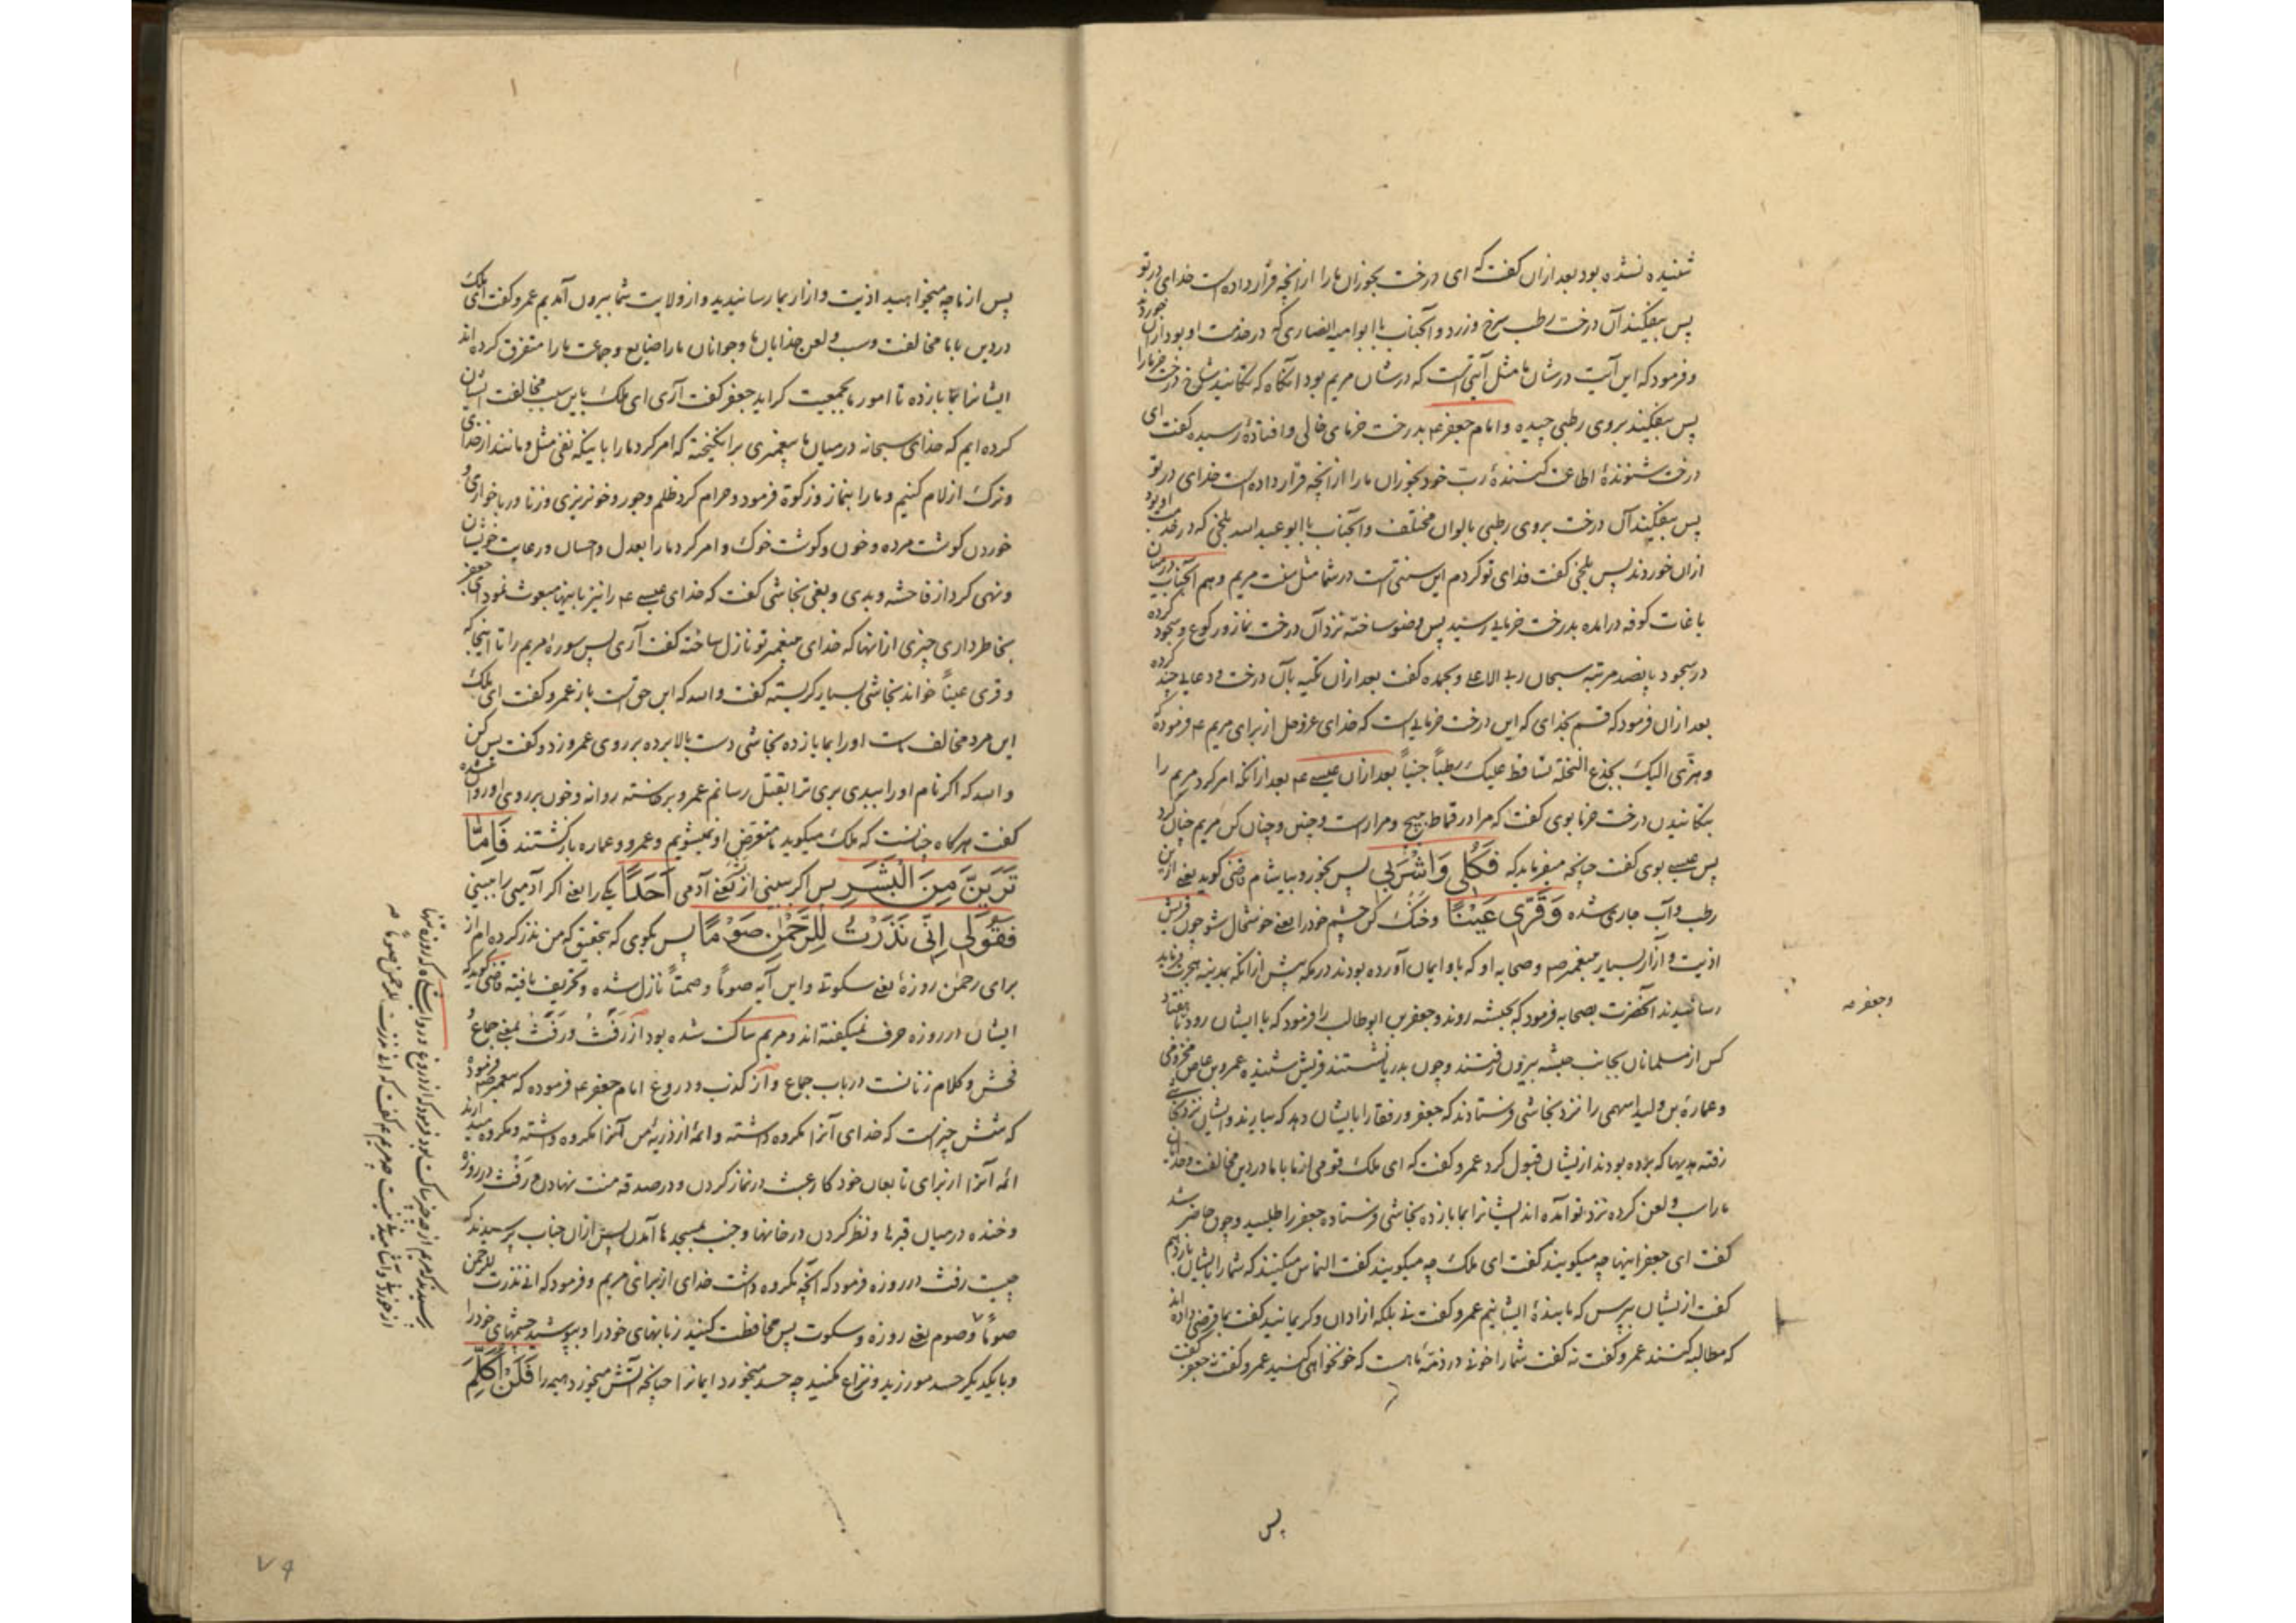 شنیده نشده بود بعد ازان گفت که ای درخت بخوران ما را ازانچه قرار داده است خدای در تو
پس بیفکند آن درخت رطب سرخ و زرد و آنجناب با ابو امیه انصاری که در خدمت او بود ازان خوردند
و فرمود که این آیت در شان ما مثل آیتی است که در شان مریم بود آنگاه که بتکانید شاخ درخت خرما را
پس بیفکند بروی رطبی چیده و امام جعفر ع بدرخت خرمای خالی و افتاده رسیده گفت ای
درخت شنونده اطاعت کننده رب خود بخوران ما را ازانچه قرار داده است خدای در تو
پس بیفکند آن درخت بروی رطبی بالوان مختلف و آنجناب با ابو عبد الله بلخی که در خدمت او بود
ازان خوردند پس بلخی گفت فدای تو کردم این سنتی است در شما مثل سنت مریم و هم آنجناب در میان
باغات کوفه درامده بدرخت خرمایی رسید پس وضو ساخته نزد آن درخت نماز و رکوع و سجود کرده
در سجود پانصد مرتبه سبحان ربی الاعلی و بحمده گفت بعد ازان تکیه بآن درخت و دعایی چند کرده
بعد ازان فرمود که قسم بخدای که این درخت خرمایی است که خدای عز و جل از برای مریم ع فرموده که
و هزی الیک بجذع النخلة تساقط علیک رطباً جنیاً بعد ازان عیسی ع بعد ازانکه امر کرد مریم را
بتکانیدن درخت خرما بوی گفت که مرا در قماط پیچ و مرا راست و چنین و چنان کن مریم چنان کرد
پس عیسی بوی گفت چنانچه میفرماید که فَكُلِي وَاشْرَبِي پس بخور و بیاشام قاضی گوید یعنی ازین
رطب و آب جاری شده وَقَرِّي عَيْنًا و خنک کن چشم خود را یعنی خوشحال شو چون قریش
اذیت و آزار بسیار پیغمبر صم و صحابه او که باو ایمان آورده بودند در مکه پیش ازانکه بمدینه هجرت فرماید
رسانیدند آنحضرت بصحابه فرمود که بحبشه روند و جعفر بن ابو طالب را فرمود که با ایشان رود تا هفتاد
کس از مسلمانان بجانب حبشه بیرون رفتند و چون بدریا نشستند قریش شنیده عمرو بن عاص مخزومی
و عماره بن ولید سهمی را نزد نجاشی فرستادند که جعفر و رفقا را بایشان دهد که بیارند و ایشان نزد نجاشی
رفته هدیها که برده بودند ازیشان قبول کرد عمرو گفت که ای ملک قومی از ما با ما در دین مخالفت و خدایان
ما را سب و لعن کرده نزد تو آمده اند ایشانرا بما باز ده نجاشی فرستاده جعفر را طلبید و چون حاضر شد
گفت ای جعفر اینها چه میگویند گفت ای ملک چه میگویند گفت التماس میکنند که شما را بایشان باز دهم
گفت ازیشان بپرس که ما بنده ایشانیم عمرو گفت نی بلکه ازادان و کریمانید گفت بما قرضی داده اند
که مطالبه کنند عمرو گفت نه گفت شما را خونی در ذمه ما هست که خونخواهی کنید عمرو گفت نه جعفر گفت
پس
و جعفر صه
پس از ما چه میخواهید اذیت و ازار بما رسانیدید و از ولایت شما بیرون آمدیم عمرو گفت ای ملک
در دین با ما مخالفت و سب و لعن خدایان ما و جوانان ما را ضایع و جماعت ما را متفرق کرده اند
ایشانرا بما باز ده تا امور ما بجمعیت گراید جعفر گفت آری ای ملک باین سبب مخالفت ایشان
کرده ایم که خدای سبحانه در میان ما پیغمبری برانگیخته که امر کرد ما را باینکه نفی مثل و مانند از خدای
و ترک ازلام کنیم و ما را بنماز و زکوة فرمود و حرام کرد ظلم و جور و خونریزی و زنا و ربا خواری و
خوردن گوشت مرده و خون و گوشت خوک و امر کرد ما را بعدل و احسان و رعایت خویشان
و نهی کرد از فاحشه و بدی و بغی نجاشی گفت که خدای عیسی ع را نیز باینها مبعوث نمود ای جعفر
بخاطر داری چیزی ازانها که خدای بپیغمبر تو نازل ساخته گفت آری پس سوره مریم را تا اینجا که
و قری عیناً خواند نجاشی بسیار گریسته گفت و الله که این حق است باز عمرو گفت ای ملک
این مرد مخالف ماست او را بما باز ده نجاشی دست بالا برده بر روی عمرو زد و گفت بس کن
و الله که اگر نام او را ببدی بری ترا بقتل رسانم عمرو برخاسته روانه و خون بر روی او روان شده
گفت هرگاه چنانست که ملک میگوید متعرض او نمیشویم و عمرو و عماره بازگشتند فَإِمَّا
تَرَيِنَّ مِنَ الْبَشَرِ پس اگر ببینی از بشر یعنی آدمی أَحَدًا یکی را یعنی اگر آدمی را ببینی
فَقُولِي إِنِّي نَذَرْتُ لِلرَّحْمٰنِ صَوْمًا پس بگوی که بتحقیق که من نذر کرده ام از
برای رحمٰن روزهٔ یعنی سکوتی و این آیه صوماً و صمتاً نازل شده و تحریف یافته قاضی گوید که
ایشان در روزه حرف نمیگفته اند و مریم ساکت شده بود از رَفَث و رفث بمعنی جماع و
فحش و کلام زنانست در باب جماع و از کذب و دروغ امام جعفر ع فرموده که پیغمبر صم فرموده
که شش چیز است که خدای آنرا مکروه داشته و ائمه از ذریهٔ من آنرا مکروه داشته و مکروه میدارند
ائمه آنرا از برای تابعان خود کار عبث در نماز کردن و در صدقه منت نهادن و رفث در روزه
و خنده در میان قبرها و نظر کردن در خانها و جنب بمسجدها آمدن پس ازان جناب پرسیدند که
چیست رفث در روزه فرمود که آنچه مکروه داشت خدای از برای مریم و فرمود که انی نذرت للرحمن
صوماً و صوم یعنی روزه و سکوت پس محافظت کنید زبانهای خود را و بپوشید چشمهای خود را
و با یکدیگر حسد مورزید و نزاع مکنید چه حسد میخورد ایمانرا چنانچه آتش میخورد هیمه را فَلَنْ أُكَلِّمَ
پرسیدند که مریم از چه چیز ساکت بود فرمود که از دروغ
۷۹